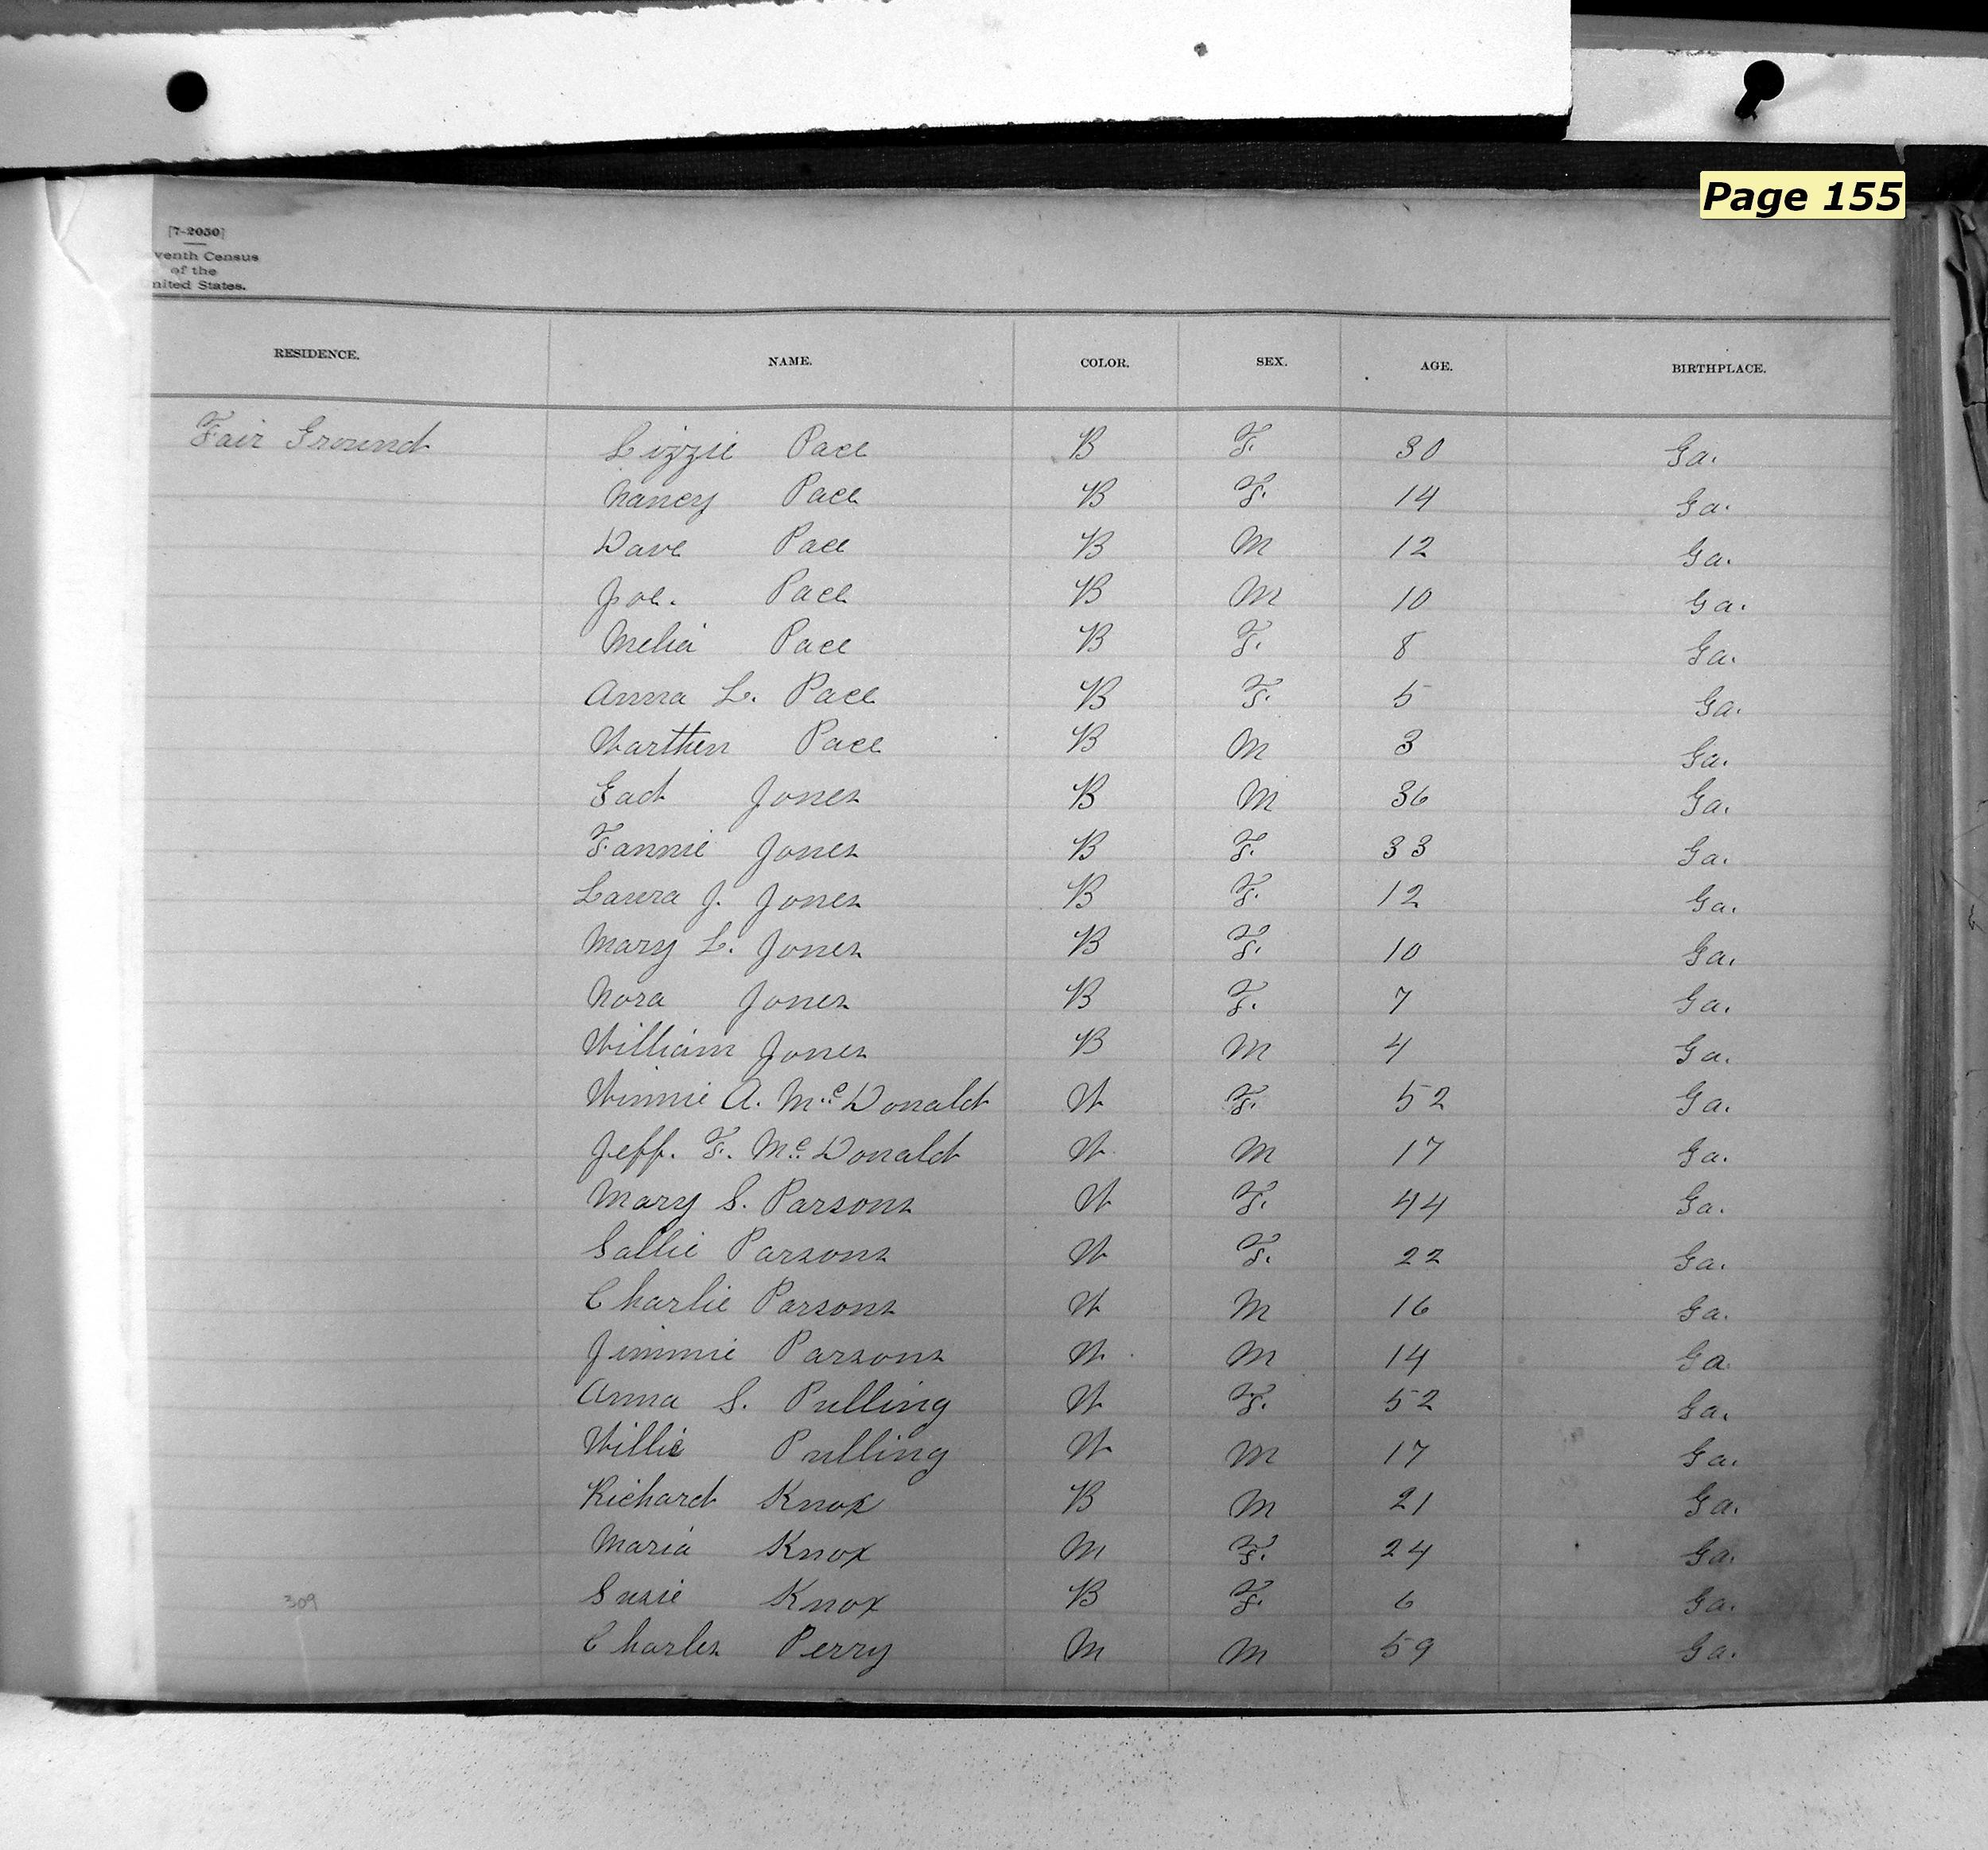 Page 155
[7-2050]
venth Census
of the
nited States.
RESIDENCE. NAME. COLOR. SEX. AGE. BIRTHPLACE.
Fair Ground Lizzie Pace B F. 30 Ga.
Nancy Pace B F. 14 Ga.
Dave Pace B M 12 Ga.
Joe. Pace B M 10 Ga.
Melia Pace B F. 8 Ga.
Anna L. Pace B F. 5 Ga.
Warthen Pace B M 3 Ga.
Gad Jones B M 36 Ga.
Fannie Jones B F. 33 Ga.
Laura J. Jones B F. 12 Ga.
Mary L. Jones B F. 10 Ga.
Nora Jones B F. 7 Ga.
William Jones B M 4 Ga.
Winnie A. McDonald W F. 52 Ga.
Jeff. F. McDonald W M 17 Ga.
Mary S. Parsons W F. 44 Ga.
Sallie Parsons W F. 22 Ga.
Charlie Parsons W M 16 Ga.
Jimmie Parsons W M 14 Ga
Anna S. Pulling W F. 52 Ga.
Willie Pulling W M 17 Ga.
Richard Knox B M 21 Ga.
Maria Knox M F. 24 Ga.
309 Susie Knox B F. 6 Ga.
Charles Perry M M 59 Ga.